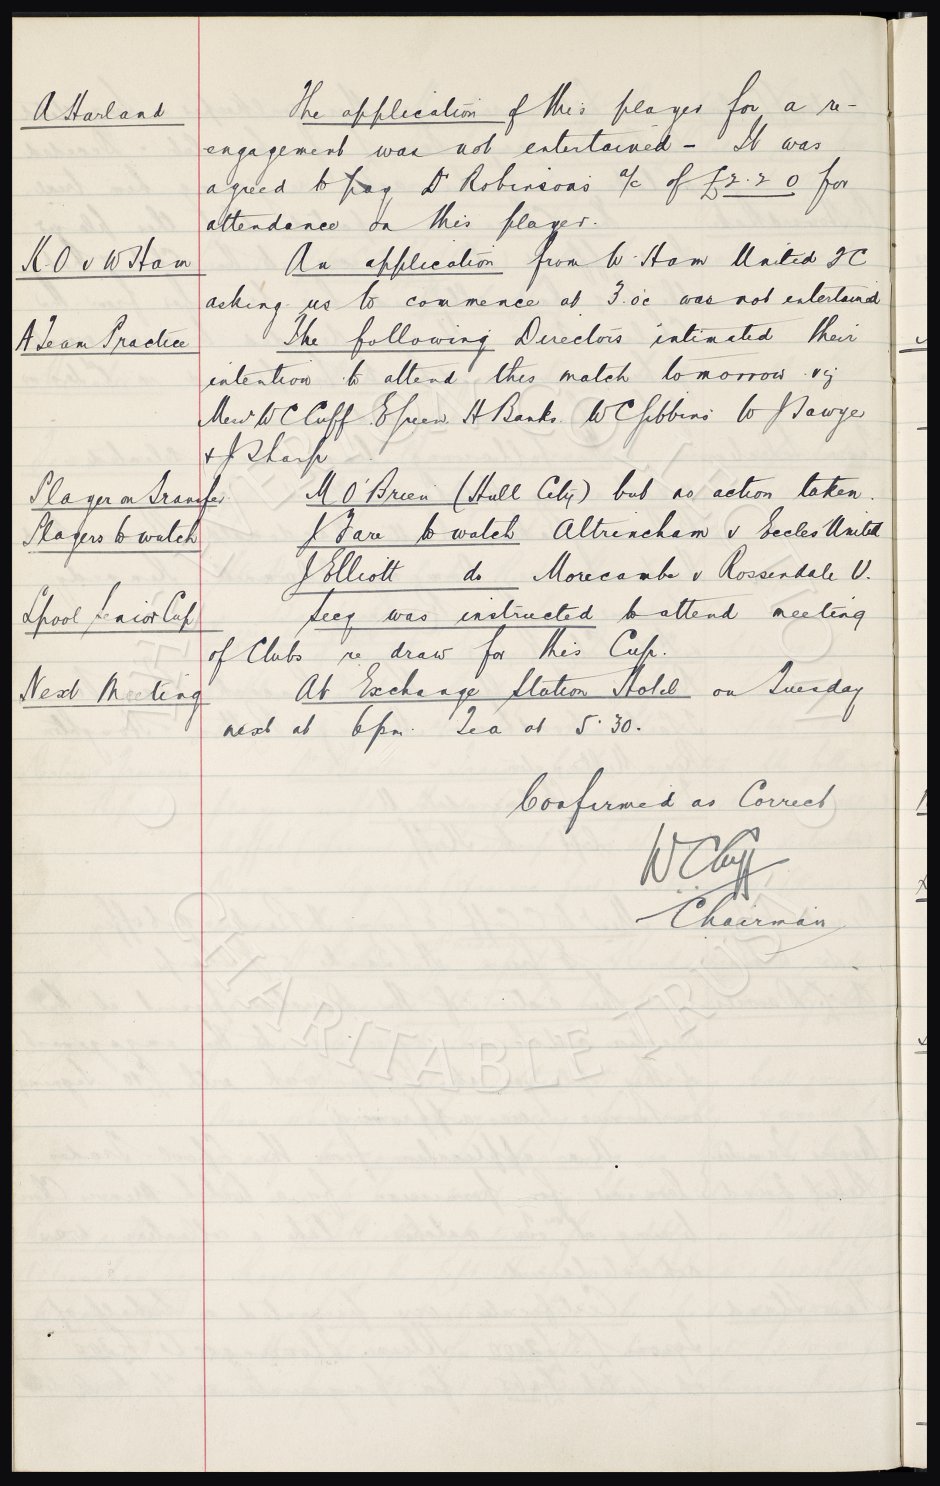 A Harland The application of this player for a re-
engagement was not entertained - It was
agreed to pay Dr Robinsons a/c of £2.2.0 for
attendance on this player.
K O v W Ham An application from W. Ham United FC
asking us to commence at 3.oc was not entertained
A Team Practice The following Directors intimated their
intention to attend this match tomorrow viz
Messrs W C Cuff E Green H Banks W C Gibbins W J Sawyer
& J Sharp
Player on Transfer M O'Brien (Hull City) but no action taken.
Players to watch J Fare to watch Altrincham v Eccles United
J Elliott do Morecambe v Rossendale U.
Lpool Senior Cup Secy was instructed to attend meeting
of Clubs re draw for this Cup.
Next Meeting At Exchange Station Hotel on Tuesday
next at 6pm. Tea at 5.30.
Confirmed as Correct
W C Cuff
Chairman
CHARITABLE TRUST